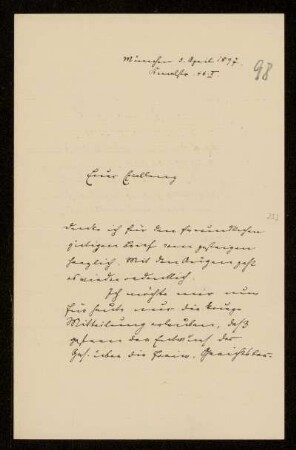 München 8. April 1897.
98
Euer Exzellenz
danke ich für den freundlichen
gütigen Brief vom gestrigen
herzlich. Mit den Augen geht
es wieder ordentlich.
Ich möchte mir nun
für heute nur die kurze
Mitteilung erlauben, daß
gestern der Entwurf des
Ges. über die freiw. Gerichtsbar-